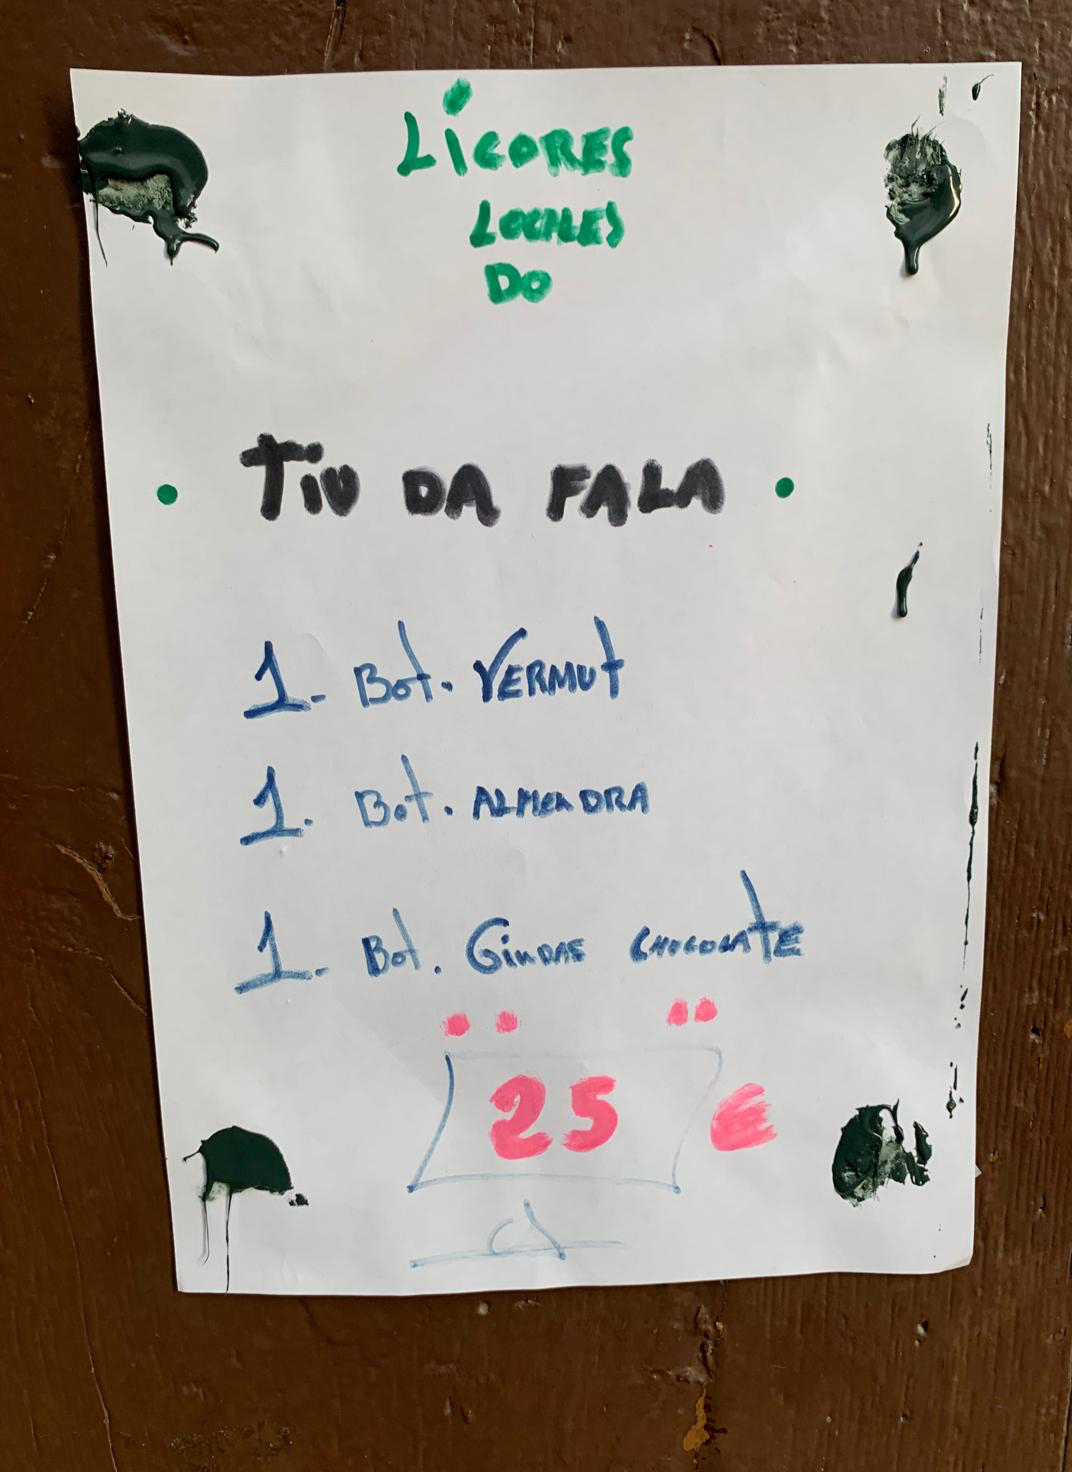 LICORES
LOCALES
DO
• TIU DA FALA •
1. Bot. VERMUT
1. Bot. ALMENDRA
1. Bot. GINDAS CHOCOLATE
25 €